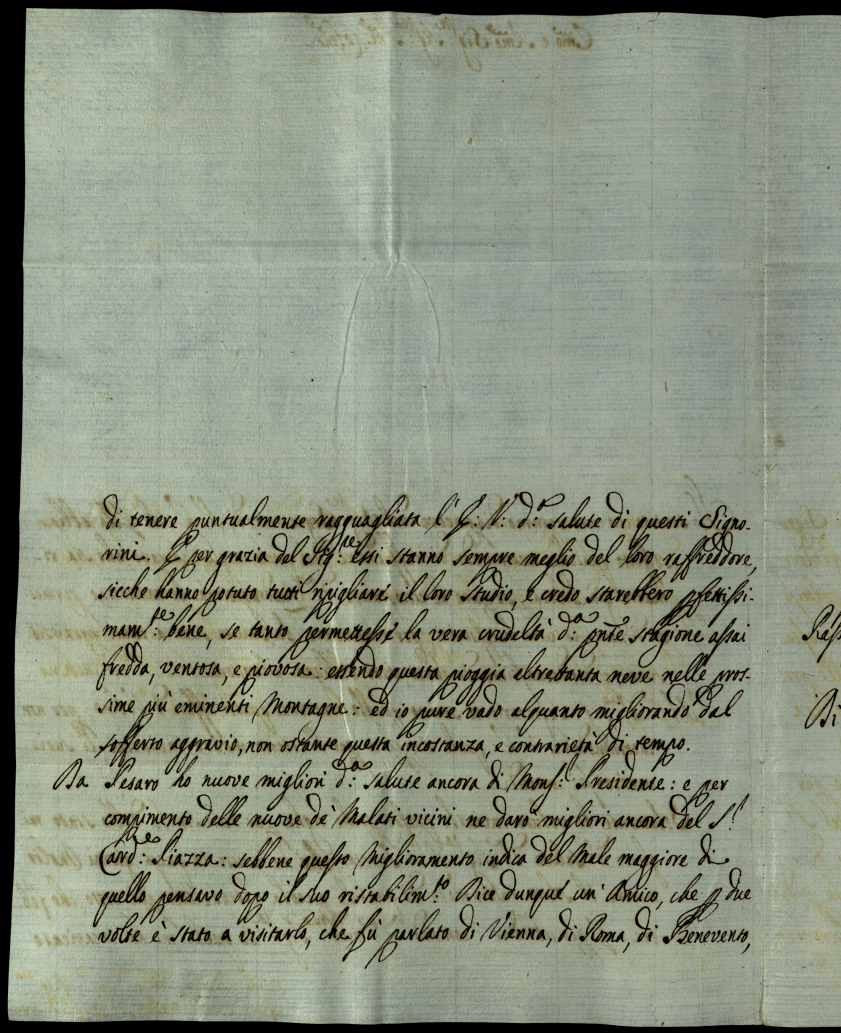 di tenere puntualmente ragguagliata l' E: V: d:ª salute di questi Signo-
rini. E per grazia del Sig:re essi stanno sempre meglio del loro raffreddore,
sicche hanno potuto tutti ripigliare il loro Studio, e credo starebbero pfettissi-
mam:te bene, se tanto permettesse la vera crudeltà d:ª pnte stagione assai
fredda, ventosa, e piovosa: essendo questa pioggia altrettanta neve nelle pros-
sime più eminenti Montagne: ed io pure vado alquanto migliorando dal
sofferto aggravio, non ostante questa incostanza, e contrarietà di tempo.
Da Pesaro ho nuove migliori d:ª salute ancora di Mons:r Presidente: e per
compimento delle nuove de' Malati vicini ne darò migliori ancora del S:r
Card:le Piazza: sebbene questo Miglioramento indica del Male maggiore di
quello pensavo dopo il suo ristabilim:to Dice dunque un' Amico, che p due
volte è stato a visitarlo, che fù parlato di Vienna, di Roma, di Benevento,